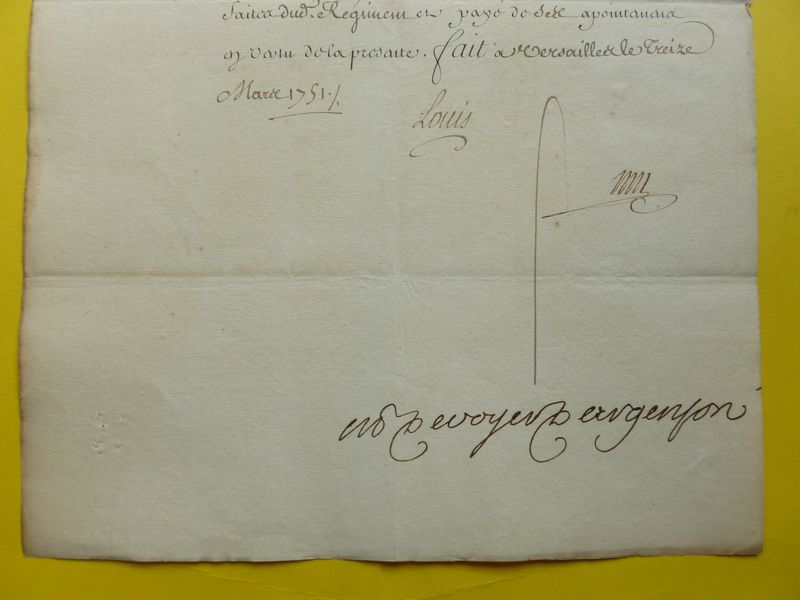 faites dud. Regiment et payé de ses apointemens
en vertu de la presente. fait a Versailles le Treize
Mars 1751./.
Louis
M de voyer d'argenson